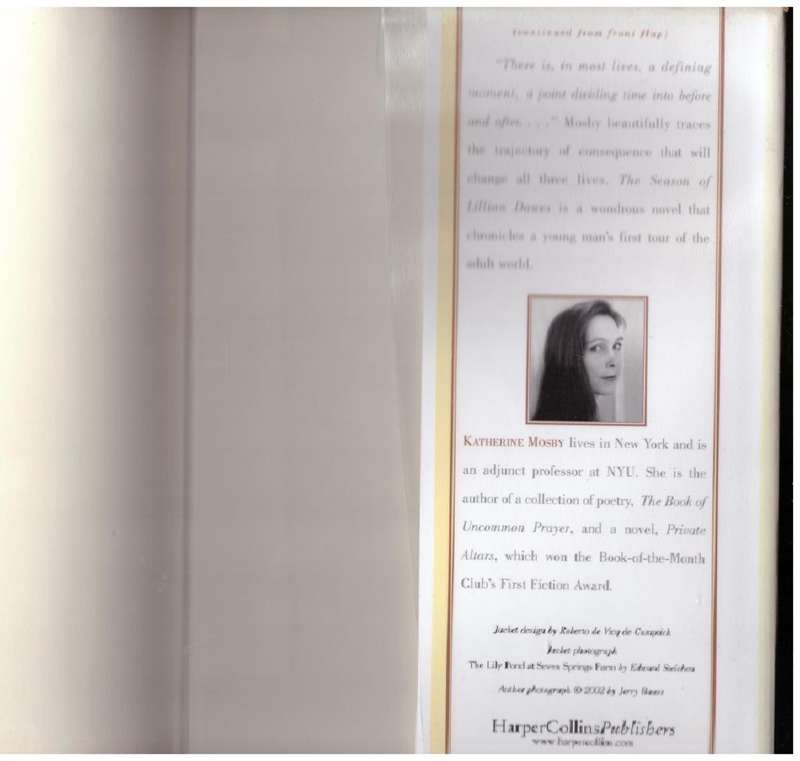 (continued from front flap)
"There is, in most lives, a defining
moment, a point dividing time into before
and after. . . ." Mosby beautifully traces
the trajectory of consequence that will
change all three lives. The Season of
Lillian Dawes is a wondrous novel that
chronicles a young man's first tour of the
adult world.
KATHERINE MOSBY lives in New York and is
an adjunct professor at NYU. She is the
author of a collection of poetry, The Book of
Uncommon Prayer, and a novel, Private
Altars, which won the Book-of-the-Month
Club's First Fiction Award.
Jacket design by Roberto de Vicq de Cumptich
Jacket photograph
The Lily Pond at Seven Springs Farm by Edward Steichen
Author photograph © 2002 by Jerry
HarperCollinsPublishers
www.harpercollins.com